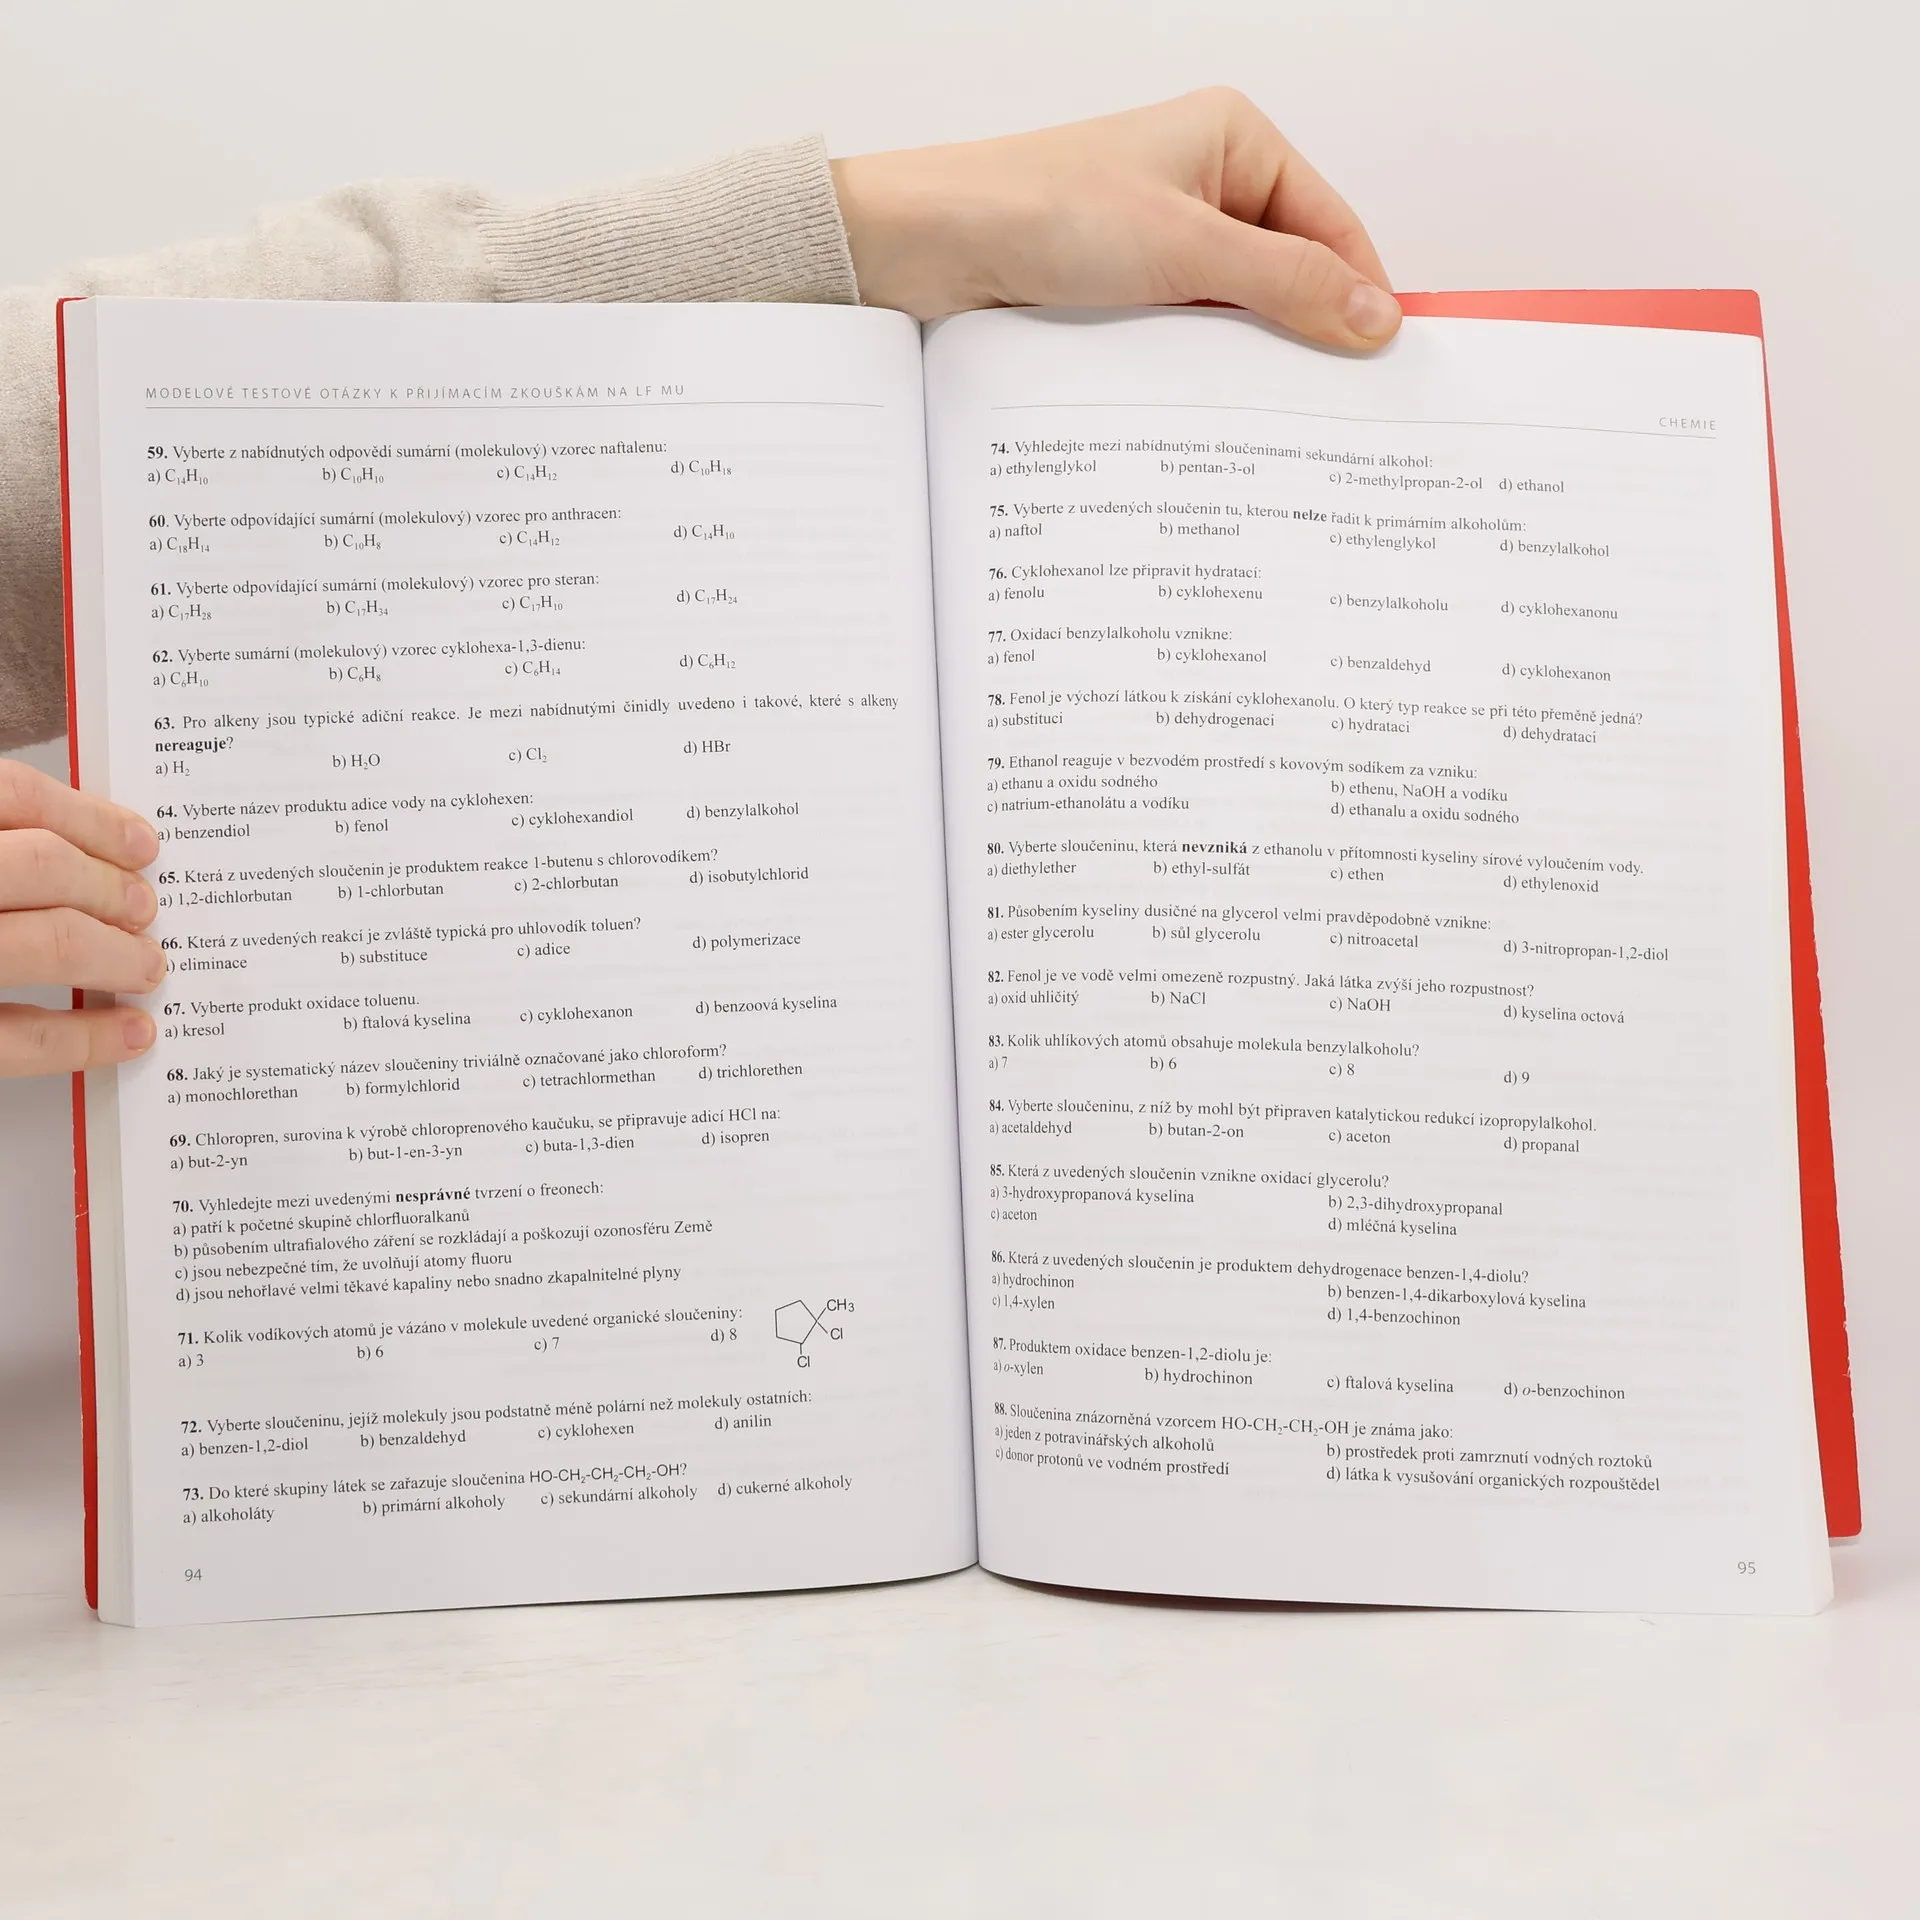 MODELOVÉ TESTOVÉ OTÁZKY K PŘIJÍMACÍM ZKOUŠKÁM NA LF MU
59. Vyberte z nabídnutých odpovědí sumární (molekulový) vzorec naftalenu:
a) C₁₄H₁₀ b) C₁₀H₁₀ c) C₁₄H₁₂ d) C₁₀H₁₈
60. Vyberte odpovídající sumární (molekulový) vzorec pro anthracen:
a) C₁₈H₁₄ b) C₁₀H₈ c) C₁₄H₁₂ d) C₁₄H₁₀
61. Vyberte odpovídající sumární (molekulový) vzorec pro steran:
a) C₁₇H₂₈ b) C₁₇H₃₄ c) C₁₇H₁₀ d) C₁₇H₂₄
62. Vyberte sumární (molekulový) vzorec cyklohexa-1,3-dienu:
a) C₆H₁₀ b) C₆H₈ c) C₆H₁₄ d) C₆H₁₂
63. Pro alkeny jsou typické adiční reakce. Je mezi nabídnutými činidly uvedeno i takové, které s alkeny
nereaguje?
a) H₂ b) H₂O c) Cl₂ d) HBr
64. Vyberte název produktu adice vody na cyklohexen:
a) benzendiol b) fenol c) cyklohexandiol d) benzylalkohol
65. Která z uvedených sloučenin je produktem reakce 1-butenu s chlorovodíkem?
a) 1,2-dichlorbutan b) 1-chlorbutan c) 2-chlorbutan d) isobutylchlorid
66. Která z uvedených reakcí je zvláště typická pro uhlovodík toluen?
) eliminace b) substituce c) adice d) polymerizace
67. Vyberte produkt oxidace toluenu.
a) kresol b) ftalová kyselina c) cyklohexanon d) benzoová kyselina
68. Jaký je systematický název sloučeniny triviálně označované jako chloroform?
a) monochlorethan b) formylchlorid c) tetrachlormethan d) trichlorethen
69. Chloropren, surovina k výrobě chloroprenového kaučuku, se připravuje adicí HCl na:
a) but-2-yn b) but-1-en-3-yn c) buta-1,3-dien d) isopren
70. Vyhledejte mezi uvedenými nesprávné tvrzení o freonech:
a) patří k početné skupině chlorfluoralkanů
b) působením ultrafialového záření se rozkládají a poškozují ozonosféru Země
c) jsou nebezpečné tím, že uvolňují atomy fluoru
d) jsou nehořlavé velmi těkavé kapaliny nebo snadno zkapalnitelné plyny
71. Kolik vodíkových atomů je vázáno v molekule uvedené organické sloučeniny:
a) 3 b) 6 c) 7 d) 8
CH₃
Cl
Cl
72. Vyberte sloučeninu, jejíž molekuly jsou podstatně méně polární než molekuly ostatních:
a) benzen-1,2-diol b) benzaldehyd c) cyklohexen d) anilin
73. Do které skupiny látek se zařazuje sloučenina HO-CH₂-CH₂-CH₂-OH?
a) alkoholáty b) primární alkoholy c) sekundární alkoholy d) cukerné alkoholy
94
CHEMIE
74. Vyhledejte mezi nabídnutými sloučeninami sekundární alkohol:
a) ethylenglykol b) pentan-3-ol c) 2-methylpropan-2-ol d) ethanol
75. Vyberte z uvedených sloučenin tu, kterou nelze řadit k primárním alkoholům:
a) naftol b) methanol c) ethylenglykol d) benzylalkohol
76. Cyklohexanol lze připravit hydratací:
a) fenolu b) cyklohexenu c) benzylalkoholu d) cyklohexanonu
77. Oxidací benzylalkoholu vznikne:
a) fenol b) cyklohexanol c) benzaldehyd d) cyklohexanon
78. Fenol je výchozí látkou k získání cyklohexanolu. O který typ reakce se při této přeměně jedná?
a) substituci b) dehydrogenaci c) hydrataci d) dehydrataci
79. Ethanol reaguje v bezvodém prostředí s kovovým sodíkem za vzniku:
a) ethanu a oxidu sodného b) ethenu, NaOH a vodíku
c) natrium-ethanolátu a vodíku d) ethanalu a oxidu sodného
80. Vyberte sloučeninu, která nevzniká z ethanolu v přítomnosti kyseliny sírové vyloučením vody.
a) diethylether b) ethyl-sulfát c) ethen d) ethylenoxid
81. Působením kyseliny dusičné na glycerol velmi pravděpodobně vznikne:
a) ester glycerolu b) sůl glycerolu c) nitroacetal d) 3-nitropropan-1,2-diol
82. Fenol je ve vodě velmi omezeně rozpustný. Jaká látka zvýší jeho rozpustnost?
a) oxid uhličitý b) NaCl c) NaOH d) kyselina octová
83. Kolik uhlíkových atomů obsahuje molekula benzylalkoholu?
a) 7 b) 6 c) 8 d) 9
84. Vyberte sloučeninu, z níž by mohl být připraven katalytickou redukcí izopropylalkohol.
a) acetaldehyd b) butan-2-on c) aceton d) propanal
85. Která z uvedených sloučenin vznikne oxidací glycerolu?
a) 3-hydroxypropanová kyselina b) 2,3-dihydroxypropanal
c) aceton d) mléčná kyselina
86. Která z uvedených sloučenin je produktem dehydrogenace benzen-1,4-diolu?
a) hydrochinon b) benzen-1,4-dikarboxylová kyselina
c) 1,4-xylen d) 1,4-benzochinon
87. Produktem oxidace benzen-1,2-diolu je:
a) o-xylen b) hydrochinon c) ftalová kyselina d) o-benzochinon
88. Sloučenina znázorněná vzorcem HO-CH₂-CH₂-OH je známa jako:
a) jeden z potravinářských alkoholů b) prostředek proti zamrznutí vodných roztoků
c) donor protonů ve vodném prostředí d) látka k vysušování organických rozpouštědel
95